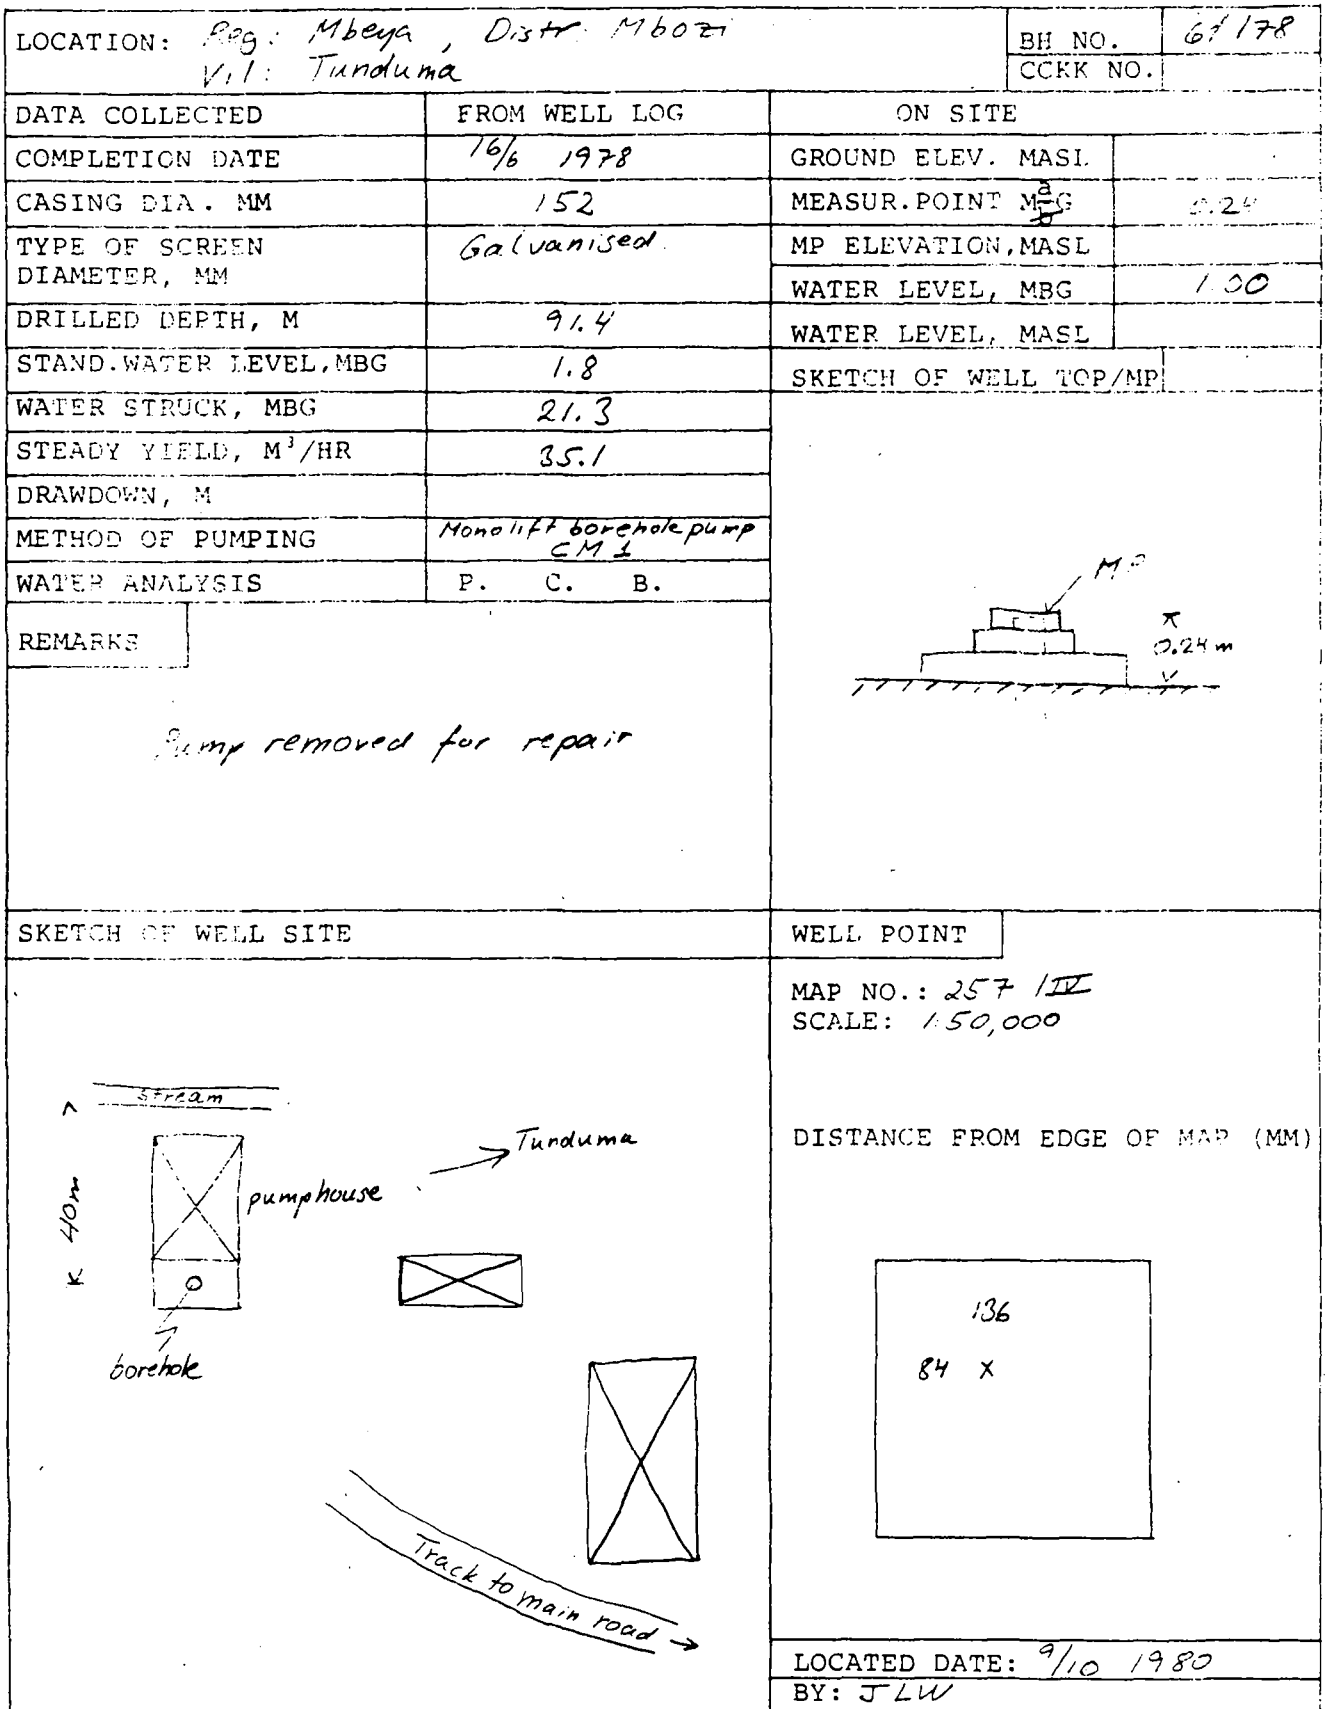 LOCATION: Reg: Mbeya, Distr: Mbozi
Vil: Tunduma
BH NO.
CCKK NO.
DATA COLLECTED FROM WELL LOG ON SITE
COMPLETION DATE 16/6 1978
CASING DIA. MM 152
TYPE OF SCREEN Galvanised
DIAMETER, MM
DRILLED DEPTH, M 91.4
STAND.WATER LEVEL,MBG 1.8
WATER STRUCK, MBG 21.3
STEADY YIELD, M³/HR 35.1
DRAWDOWN, M
METHOD OF PUMPING Monolift borehole pump
CM 1
WATER ANALYSIS P. C. B.
GROUND ELEV. MASL
MEASUR.POINT MaG 0.24
MP ELEVATION,MASL
WATER LEVEL, MBG 1.00
WATER LEVEL, MASL
SKETCH OF WELL TOP/MP
MP
0.24 m
REMARKS
Pump removed for repair
SKETCH OF WELL SITE
stream
40m
pumphouse
Tunduma
borehole
Track to main road
WELL POINT
MAP NO.: 257 /IV
SCALE: 1:50,000
DISTANCE FROM EDGE OF MAP (MM)
136
84 X
LOCATED DATE: 9/10 1980
BY: JLW